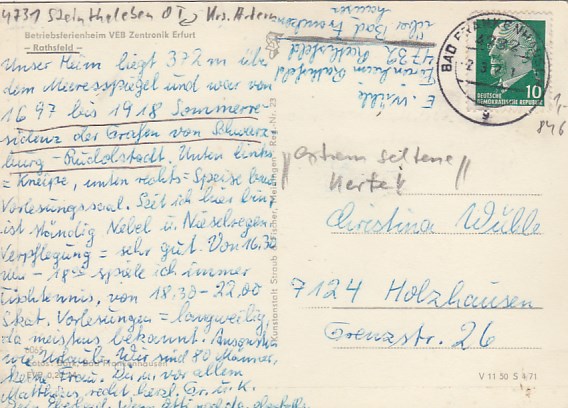 4731 Steinthaleben OT Krs. Artern
Betriebsferienheim VEB Zentronik Erfurt
- Rathsfeld -
Unser Heim liegt 372 m über
dem Meeresspiegel und war von
1697 bis 1918 Sommerre-
sidenz der Grafen von Schwarz-
burg-Rudolstadt. Unten links
= Kneipe, unten rechts = Speise bzw.
Vorlesungssaal. Seit ich hier bin
ist ständig Nebel u. Nieselregen
Verpflegung = sehr gut. Von 16.30
- 18 spiele ich immer
Tischtennis, von 18.30 - 22.00
Skat. Vorlesungen = langweilig,
da meistens bekannt. Ansonsten
wie Urlaub. Wir sind 80 Männer,
keine Frau. vor allem
Matthias, recht herzl. Gr. u. K.
E. Wühle
Ferienheim Rathsfeld
4732 Rathsfeld
über Bad Frankenhausen
BAD FRANKENHAUSEN
DEUTSCHE
DEMOKRATISCHE REPUBLIK
10
846
"extrem seltene
Karte"
Christina Wühle
7124 Holzhausen
Grenzstr. 26
Kunstanstalt Straub & Fischer, Meiningen - Reg.-Nr. 23
V 11 50 S 4/71